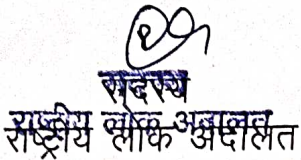 सदस्य
राष्ट्रीय लोक अदालत
राष्ट्रीय लोक अदालत